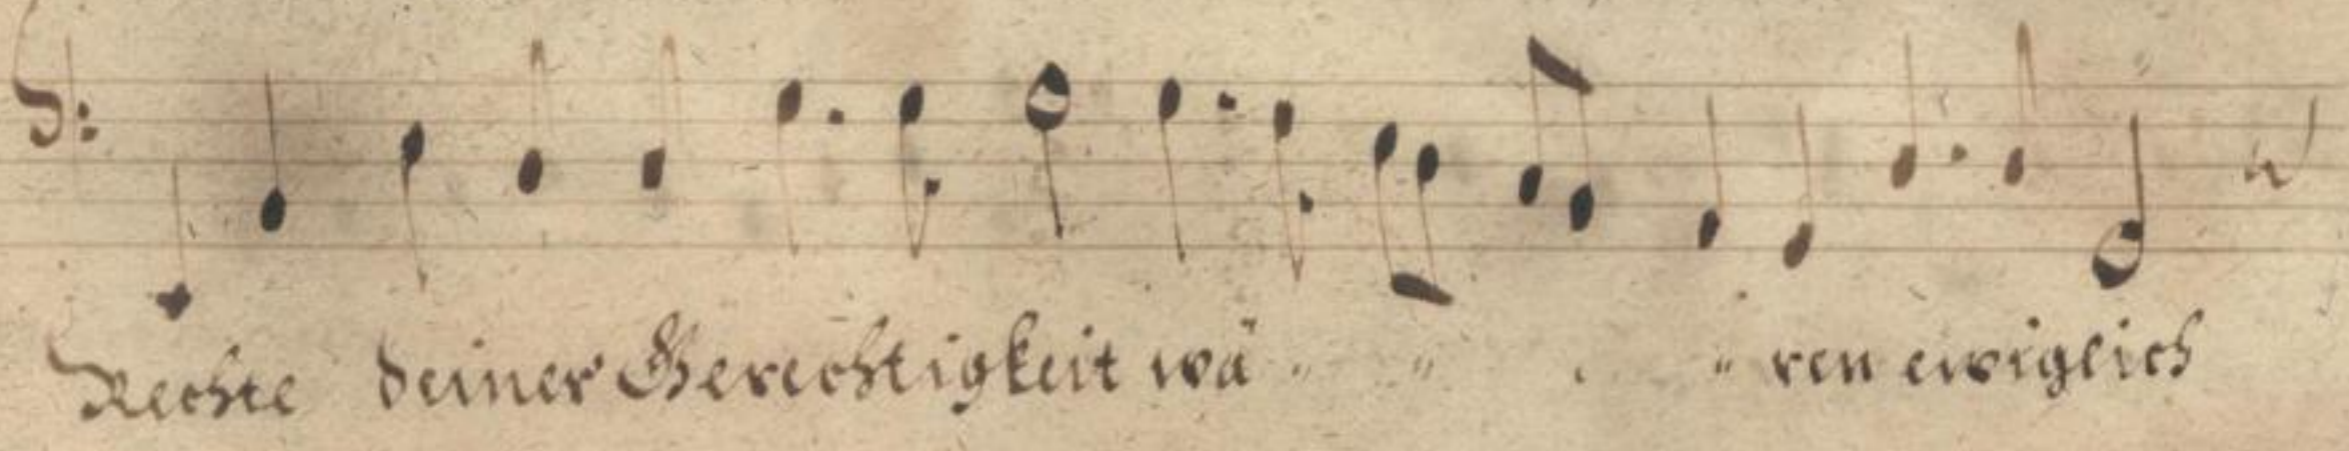 Rechte deiner Gerechtigkeit wä - - - - ren ewiglich